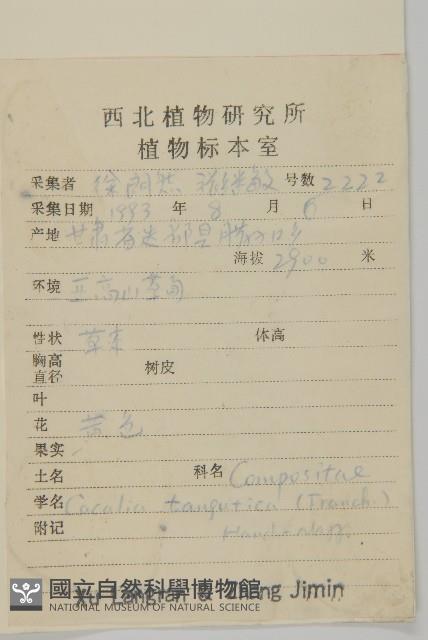 西北植物研究所
植物标本室
采集者 徐朗然 号数 2222
采集日期 1993 年 8 月 6 日
产地 甘肃省迭部县
海拔 2900 米
环境 亚高山草甸
性状 草本 体高
胸高直径 树皮
叶
花 黄色
果实
土名 科名 Compositae
学名 Cacalia tangutica (Franch.)
附记 Hand-Mazz.
國立自然科學博物館
NATIONAL MUSEUM OF NATURAL SCIENCE
Xu Langran & Zhang Jimin